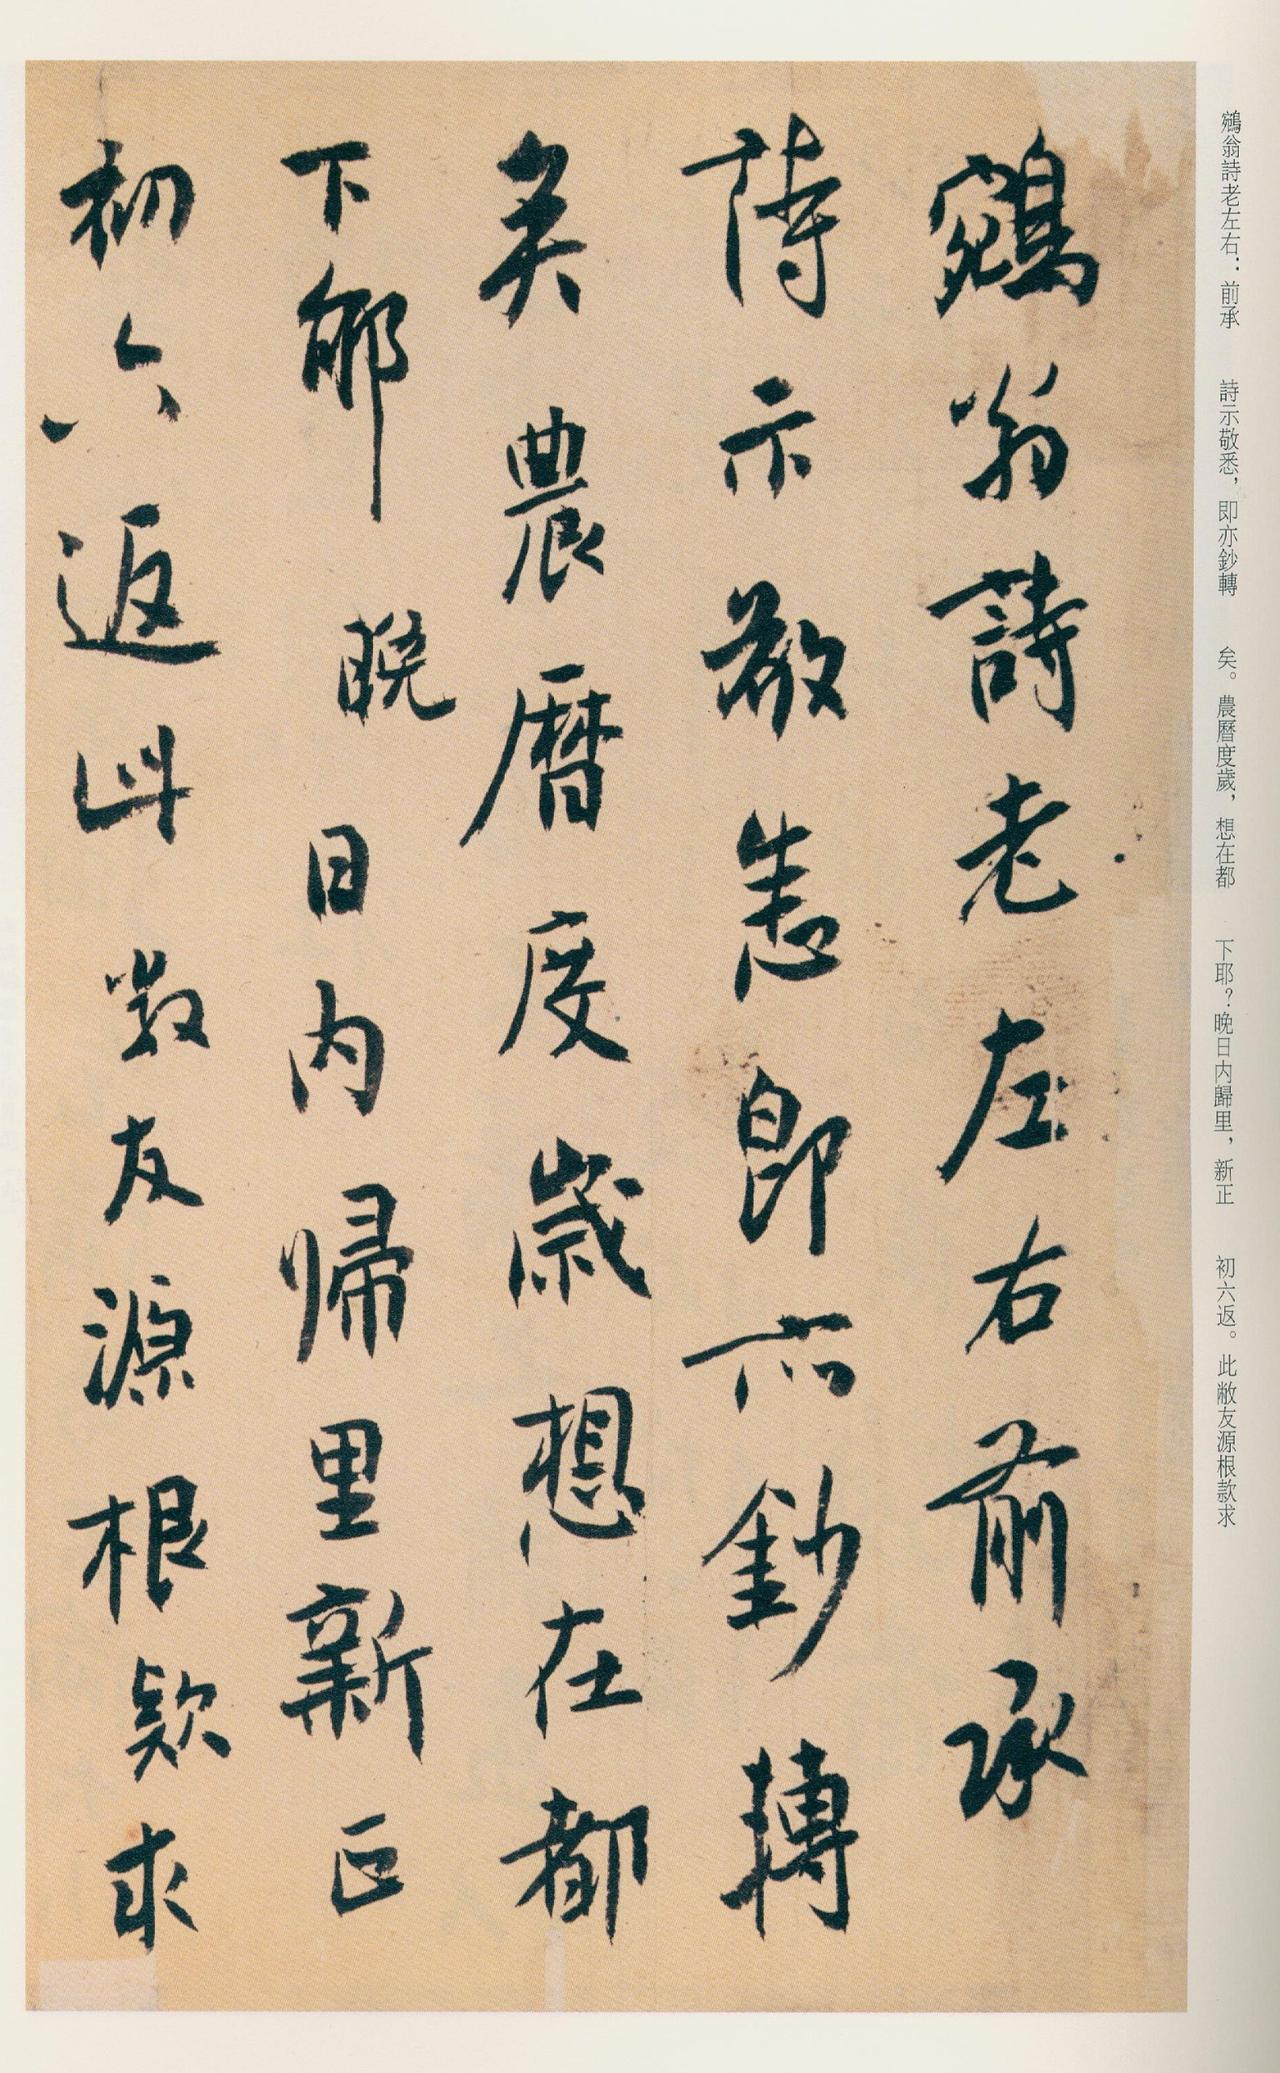 鵷翁詩老左右：前承　詩示敬悉，即亦鈔轉　矣。農曆度歲，想在都　下耶？晚日内歸里，新正　初六返。此敝友源根款求
鵷翁詩老左右前承
詩示敬悉即亦鈔轉
矣農曆度歲想在都
下耶晚日内帰里新正
初六返此敝友源根款求